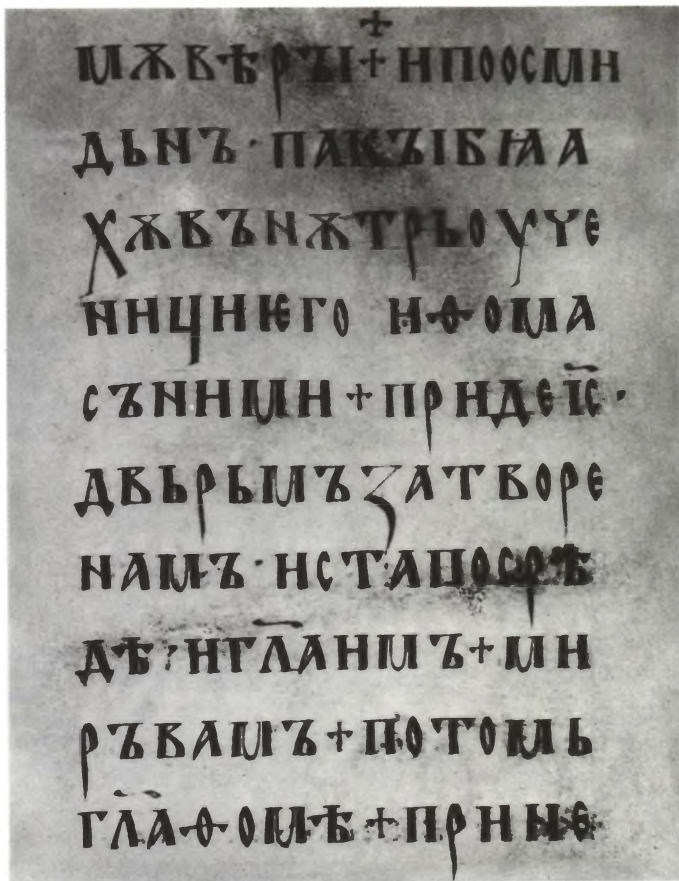 мѫвѣрꙑ+нпоосмн
дьнъ·пакꙑбꙗа
хѫвънѫтрьоуче
ннцнѥго нѳома
съннмн+прндеі҃с·
двьрьмъꙁатворе
намъ·нстапосрѣ
дѣ·нгл҃анмъ+мн
ръвамъ+потомь
гл҃аѳомѣ+прнне